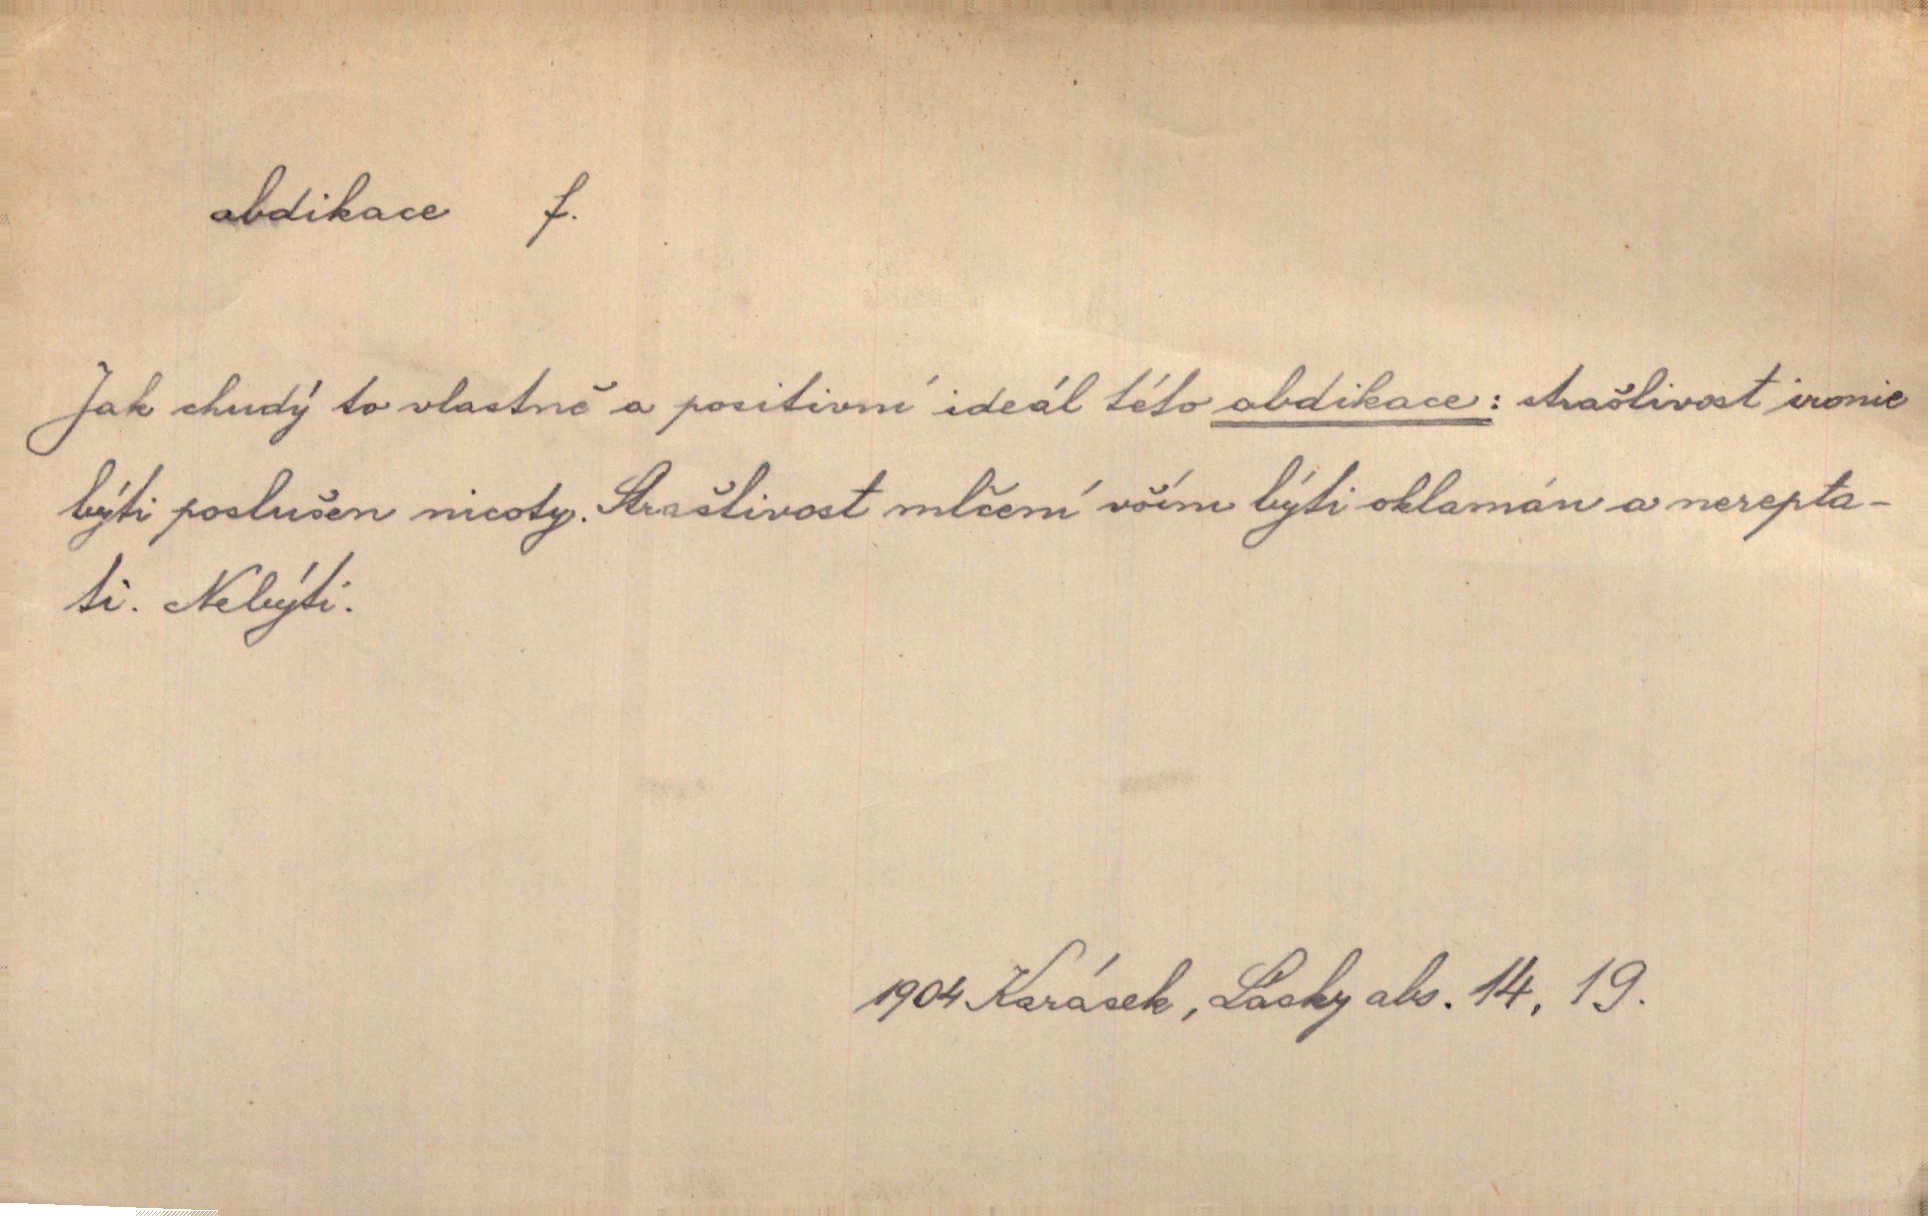 abdikace f.
Jak chudý to vlastně a positivní ideál této abdikace: strašlivost ironie
býti poslušen nicoty. Strašlivost mlčení vším býti oklamán a nerepta-
ti. Nebýti.
1904 Karásek, Lásky abs. 14, 19.